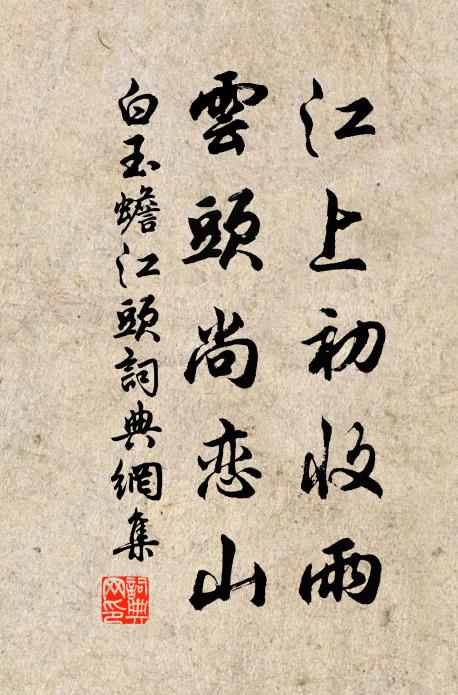 江上初收雨
雲頭尚恋山
白玉蟾江頭詞典網集
詞典網印